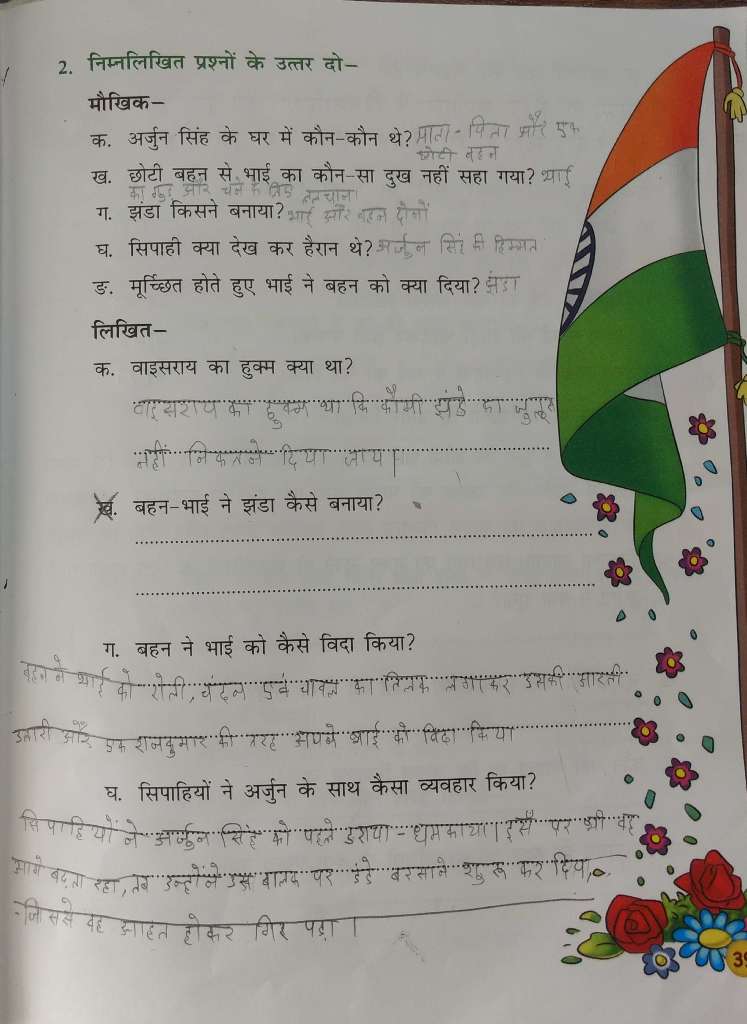 2. निम्नलिखित प्रश्नों के उत्तर दो–
मौखिक–
क. अर्जुन सिंह के घर में कौन-कौन थे? माता - पिता और एक
छोटी बहन
ख. छोटी बहन से भाई का कौन-सा दुख नहीं सहा गया? भाई
का गुड़ और चने के लिए ललचाना
ग. झंडा किसने बनाया? भाई और बहन दोनों
घ. सिपाही क्या देख कर हैरान थे? अर्जुन सिंह की हिम्मत
ङ. मूर्च्छित होते हुए भाई ने बहन को क्या दिया? झंडा
लिखित–
क. वाइसराय का हुक्म क्या था?
वाइसराय का हुक्म था कि कौमी झंडे का जुलूस
नहीं निकलने दिया जाय।
ख. बहन-भाई ने झंडा कैसे बनाया?
ग. बहन ने भाई को कैसे विदा किया?
बहन ने भाई को रोली, चंदन एवं चावल का तिलक लगाकर उसकी आरती
उतारी और एक राजकुमार की तरह अपने भाई को विदा किया
घ. सिपाहियों ने अर्जुन के साथ कैसा व्यवहार किया?
सिपाहियों ने अर्जुन सिंह को पहले डराया - धमकाया। इस पर भी वह
आगे बढ़ता रहा, तब उन्होंने उस बालक पर डंडे बरसाने शुरू कर दिया,
जिससे वह आहत होकर गिर पड़ा।